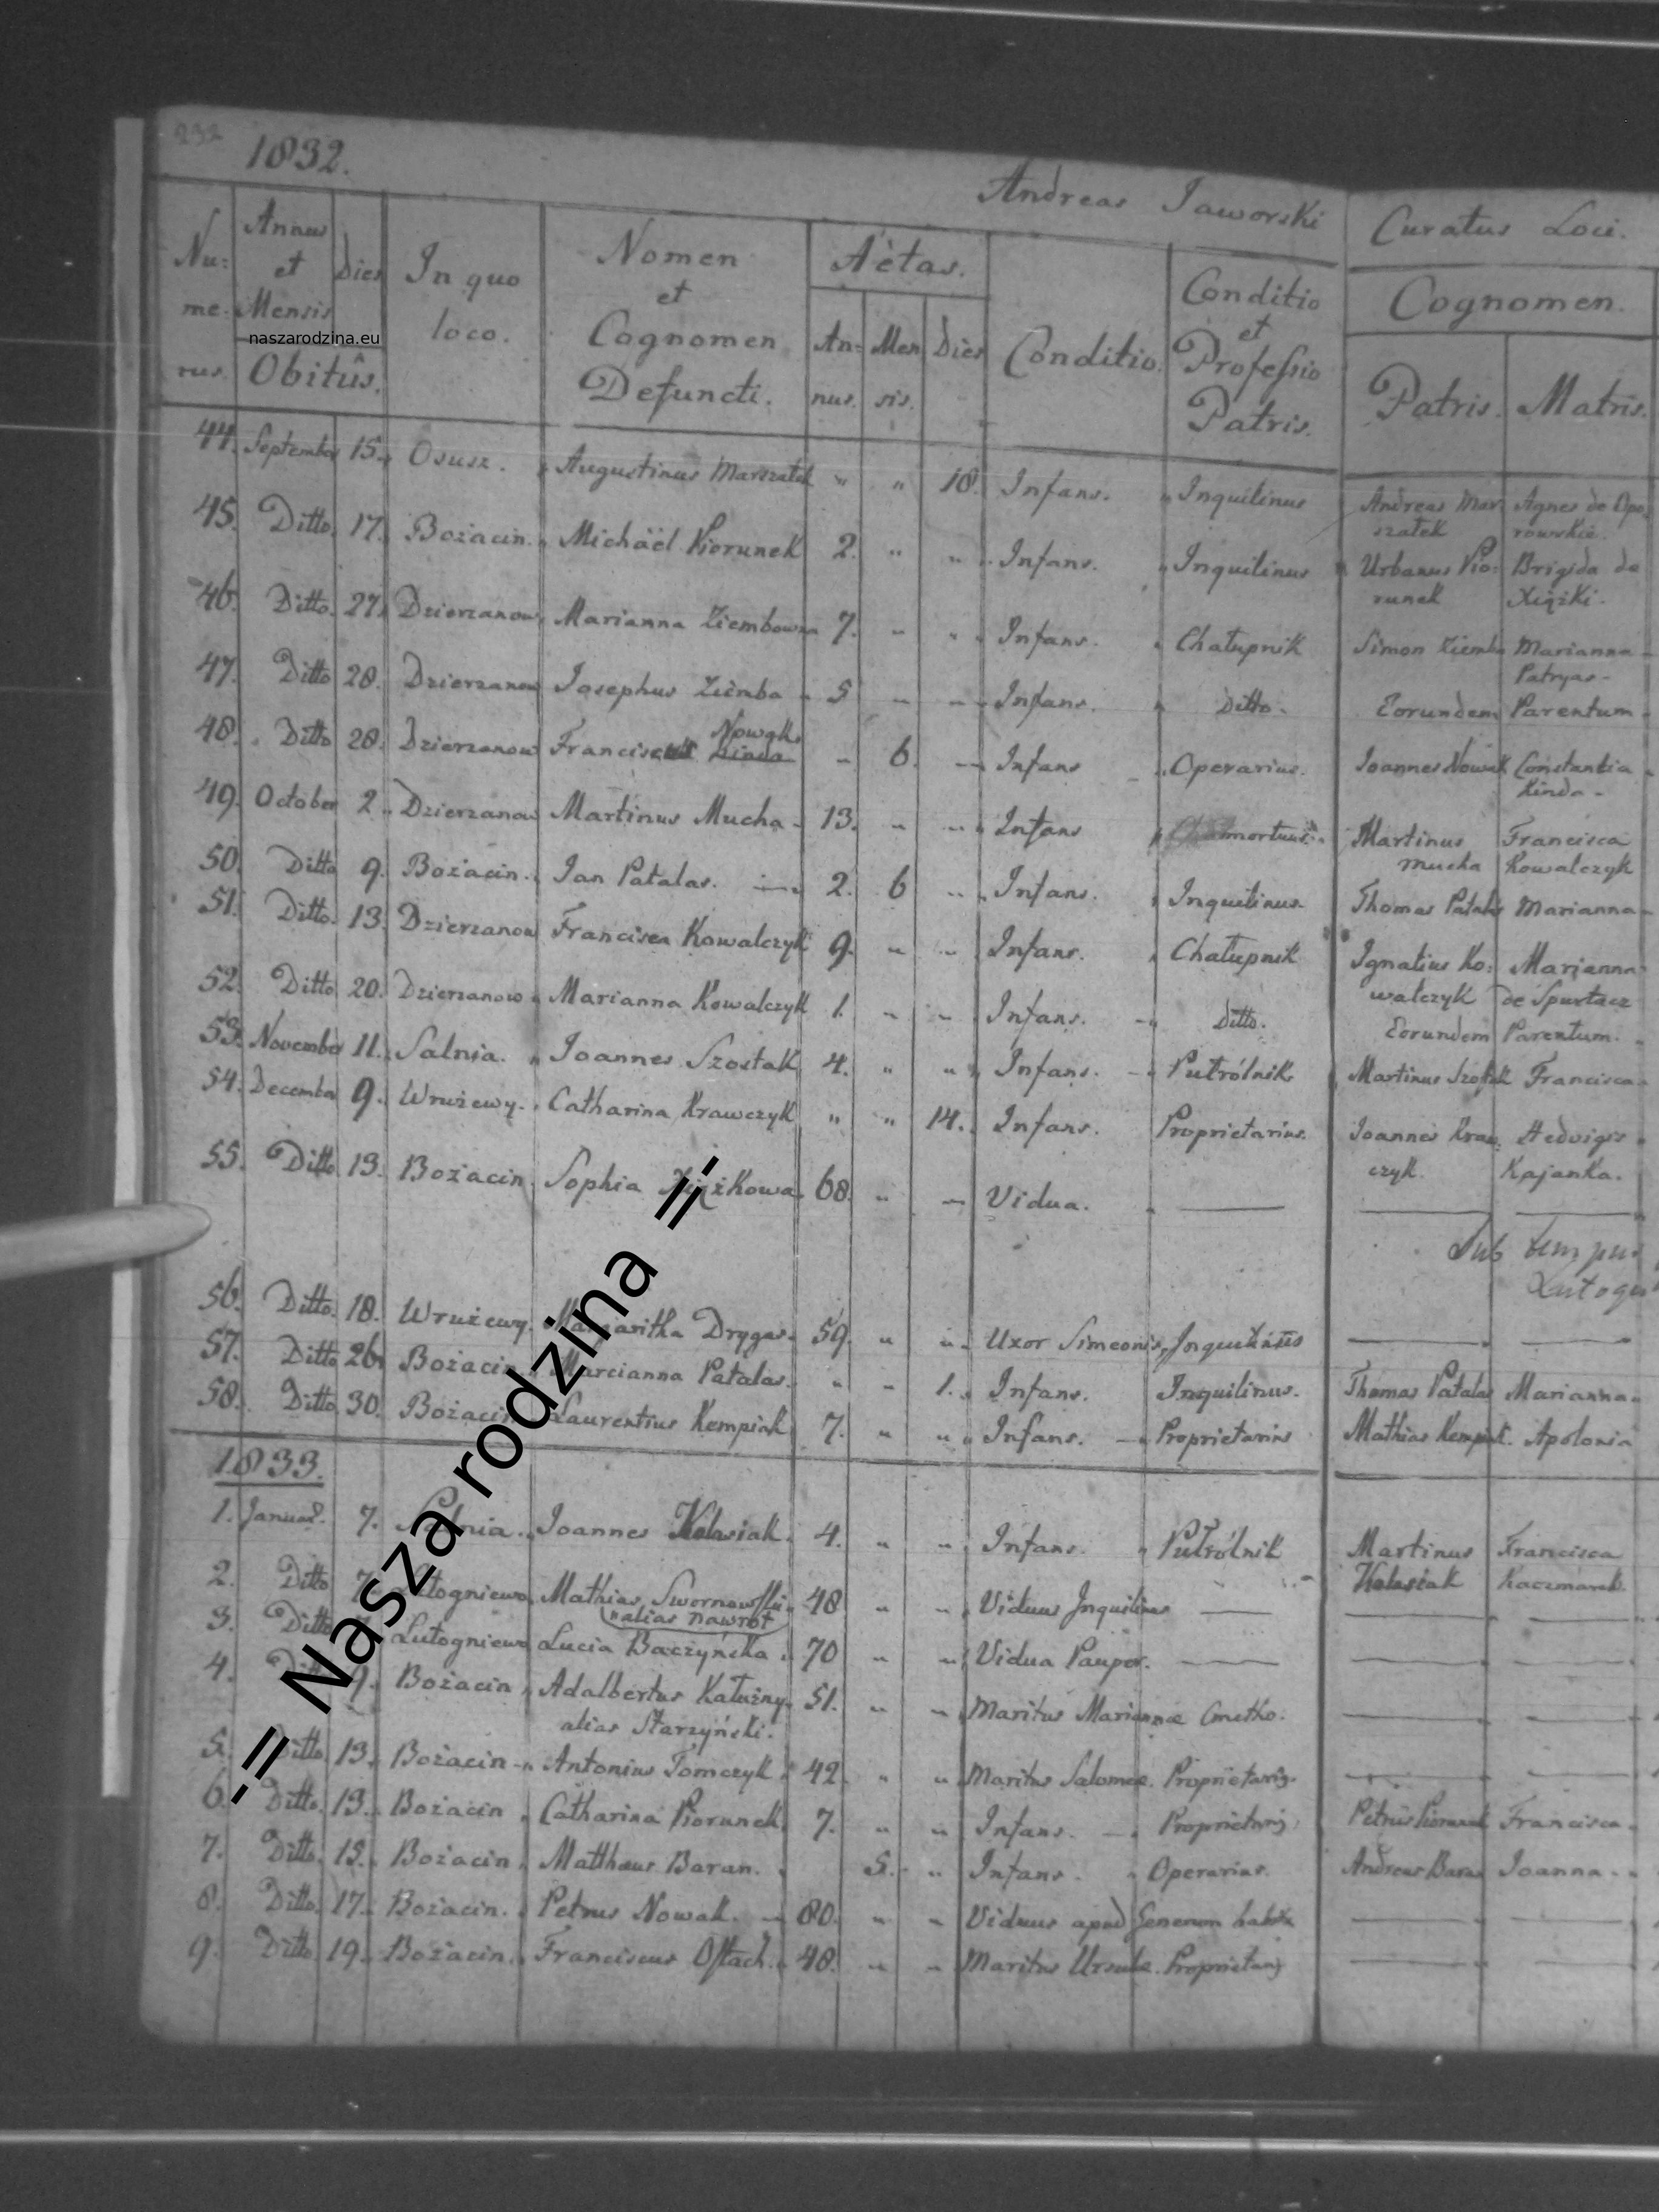 232
1832.
Andreas Jaworski Curatus Loci.
Nu: me- rus. Annus et Mensis Dies Obitûs. In quo loco. Nomen et Cognomen Defuncti. Aëtas. An- nus. Men sis. Dies Conditio. Conditio et Professio Patris. Cognomen. Patris. Matris.
naszarodzina.eu
44. September 15. Osusz. Augustinus Marszałek " " 18. Infans. Inquilinus Andreas Mar Agnes de Opo
szałek rowskie.
45. Ditto. 17. Bożacin. Michäel Piorunek 2. " " Infans. Inquilinus Urbanus Pio: Brigida de
runek Xiążki.
46. Ditto. 27. Dzierzanow Marianna Ziembowna 7. " " Infans. Chałupnik Simon Ziemba Marianna
Patryas-
47. Ditto 28. Dzierzanow Josephus Ziemba 5 " " Infans. Ditto. Eorundem Parentum.
48. Ditto 28. Dzierzanow Franciscus Nowak - 6. Infans Operarius. Joannes Nowak Constantia
Linda -
49. October 2 Dzierzanow Martinus Mucha 13. " " Infans mortuus. Martinus Francisca
Mucha Kowalczyk
50. Ditto 9. Bożacin. Jan Patalas. 2. 6 " Infans. Inquilinus Thomas Patalas Marianna
51. Ditto. 13. Dzierzanow Francisca Kowalczyk 9. " " Infans. Chałupnik Ignatius Ko: Marianna
walczyk de Spurtacz
52. Ditto 20. Dzierzanow Marianna Kowalczyk 1. " " Infans. Ditto. Eorundem Parentum.
53. November 11. Salnia. Joannes Szostak 4. " " Infans. Putrólnik Martinus Szostak Francisca
54. December 9. Wrużewy. Catharina Krawczyk " " 14. Infans. Proprietarius. Joannes Kraw Hedvigis
czyk. Kajanka.
55. Ditto 13. Bożacin. Sophia Xiążkowa 68. " Vidua.
Sub tempus
56. Ditto. 18. Wrużewy. Margaritha Drygas. 59. " " Uxor Simeonis, Inquilinus
57. Ditto 26. Bożacin Marcianna Patalas. " " 1. Infans. Inquilinus. Thomas Patalas Marianna.
58. Ditto 30. Bożacin Laurentius Kempiak 7. " " Infans. Proprietarius Mathias Kempiak. Apolonia
1833.
1. Januar. 7. Salnia. Joannes Kolasiak. 4. " " Infans. Putrólnik Martinus Francisca
Kolasiak Kaczmarek.
2. Ditto 7. Lutogniewo Mathias Swornowski 48 " " Viduus Inquilinus
alias Nawrot
3. Ditto Lutogniewo Lucia Baczyńska 70 " " Vidua Pauper.
4. Ditto 9. Bożacin Adalbertus Kałużny 51. " " Maritus Mariannæ Cmetho.
alias Starzyński.
5. Ditto. 13. Bożacin Antonius Tomczyk 42. " " Maritus Salomeæ. Proprietarius.
6. Ditto. 13. Bożacin Catharina Piorunek 7. " " Infans. Proprietarius Petrus Piorunek Francisca
7. Ditto. 15. Bożacin Matthæus Baran. 5. " Infans. Operarius. Andreas Baran Joanna
8. Ditto. 17. Bożacin. Petrus Nowak. 80. " " Viduus apud Generum
9. Ditto. 19. Bożacin. Franciscus Ostach. 48. " " Maritus Ursulæ. Proprietarius
-= Nasza rodzina =-